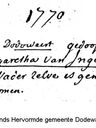 1770
Dodowaert gedoop
garetha van Inge
Vader zelve is gen
omen.
nds Hervormde gemeente Dodewa